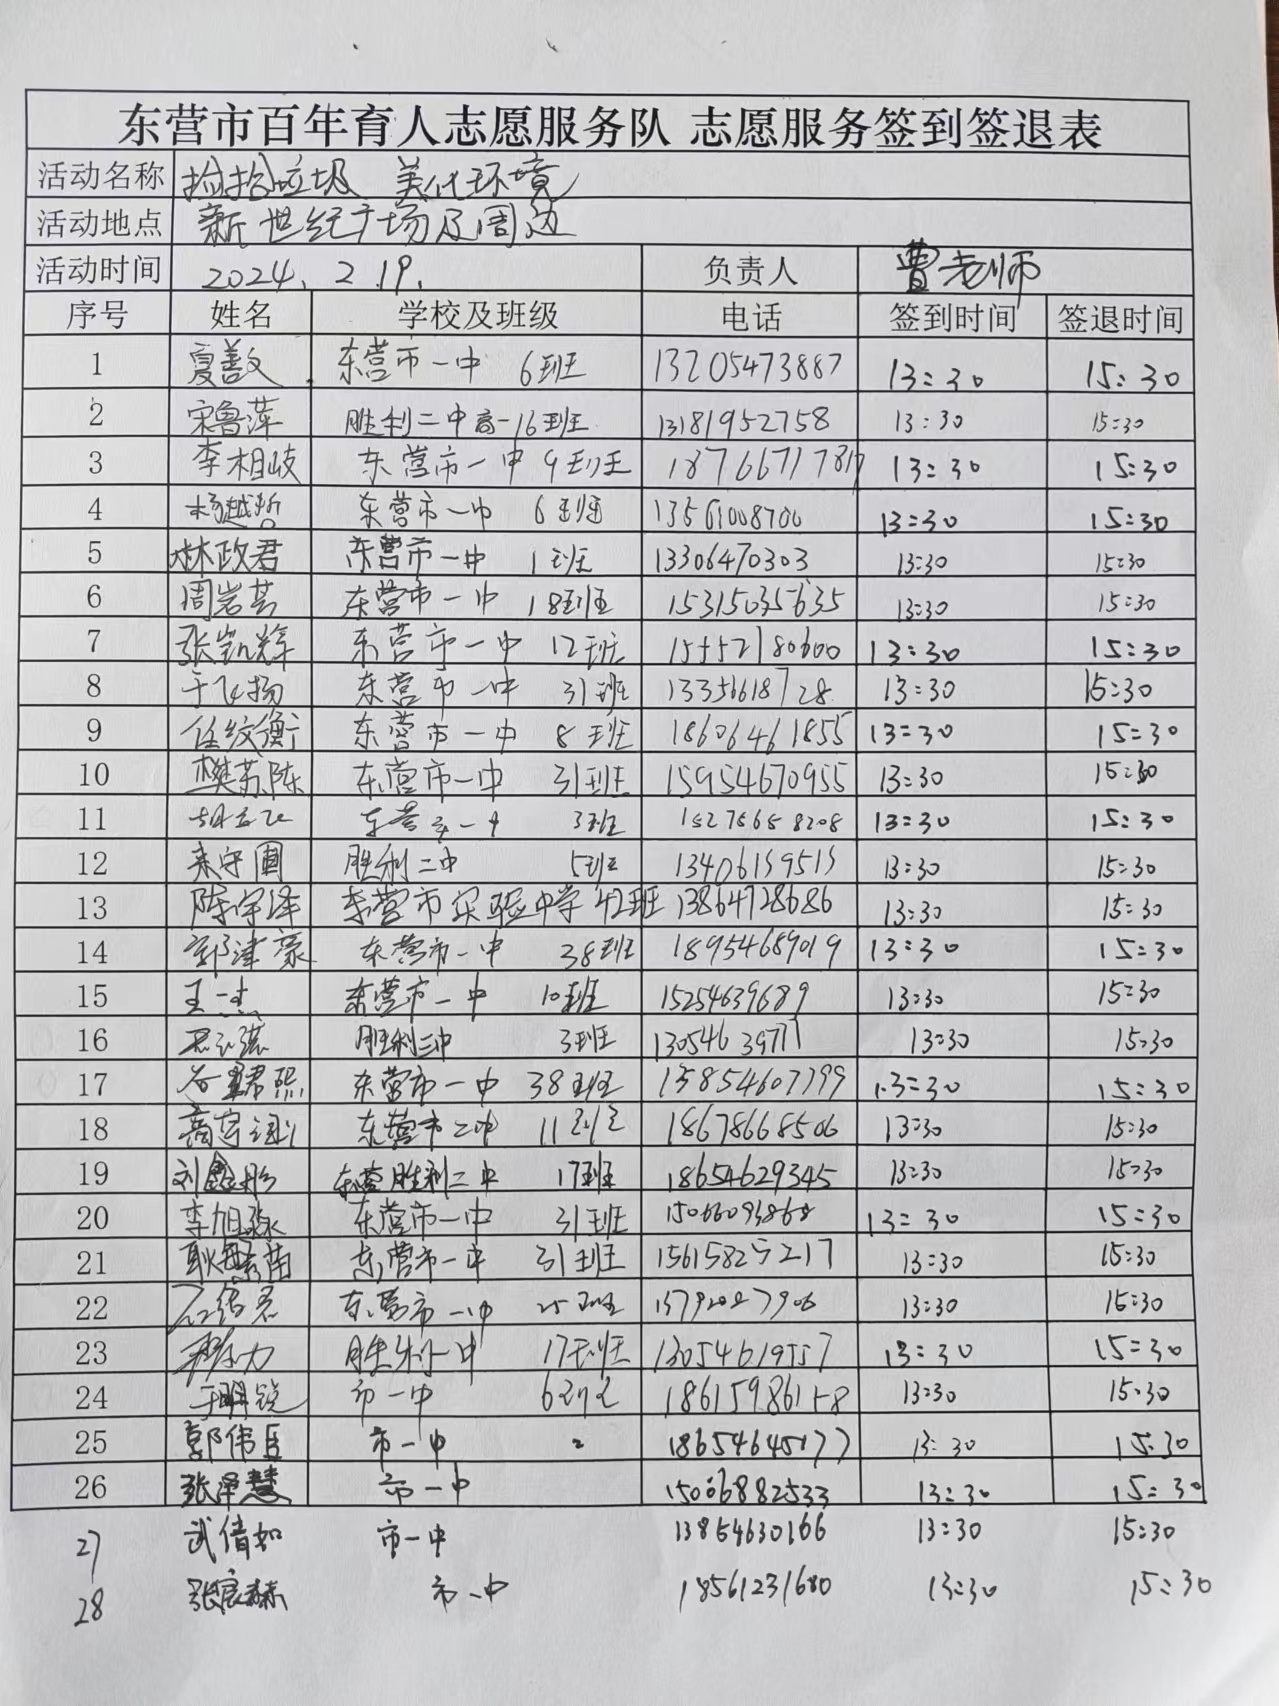 东营市百年育人志愿服务队 志愿服务签到签退表
活动名称 捡拾垃圾 美化环境
活动地点 新世纪广场及周边
活动时间 2024.2.19. 负责人 曹老师
序号 姓名 学校及班级 电话 签到时间 签退时间
1 夏善文 东营市一中 6班 13205473887 13:30 15:30
2 宋鲁萍 胜利二中高一16班 13181952758 13:30 15:30
3 李相岐 东营市一中 9班 13:30 15:30
4 杨越哲 东营市一中 6班 13561008700 13:30 15:30
5 林政君 东营市一中 1班 13306470303 13:30 15:30
6 周岩芸 东营市一中 18班 15315035635 13:30 15:30
7 张凯辉 东营市一中 12班 15552180600 13:30 15:30
8 于飞扬 东营市一中 31班 13356618728 13:30 15:30
9 任纹衡 东营市一中 8班 18606461855 13:30 15:30
10 樊苏陈 东营市一中 31班 15954670955 13:30 15:30
11 东营市一中 3班 13:30 15:30
12 来守圃 胜利二中 5班 13406159515 13:30 15:30
13 陈宇泽 东营市实验中学 42班 13864728686 13:30 15:30
14 郭津豪 东营市一中 38班 18954689019 13:30 15:30
15 王一杰 东营市一中 10班 15254639689 13:30 15:30
16 胜利二中 3班 13054639777 13:30 15:30
17 东营市一中 38班 13854607799 13:30 15:30
18 东营市二中 11班 18678668506 13:30 15:30
19 刘鑫彤 东营胜利二中 17班 18654629345 13:30 15:30
20 李旭源 东营市一中 31班 15066093868 13:30 15:30
21 东营市一中 31班 15615825217 13:30 15:30
22 东营市一中 25班 13:30 15:30
23 17班 13054619557 13:30 15:30
24 于明锐 市一中 6班 18615986158 13:30 15:30
25 郭伟臣 市一中 2 13:30 15:30
26 张泽慧 市一中 15006882533 13:30 15:30
27 武倩如 市一中 13854630166 13:30 15:30
28 市一中 18561231680 13:30 15:30